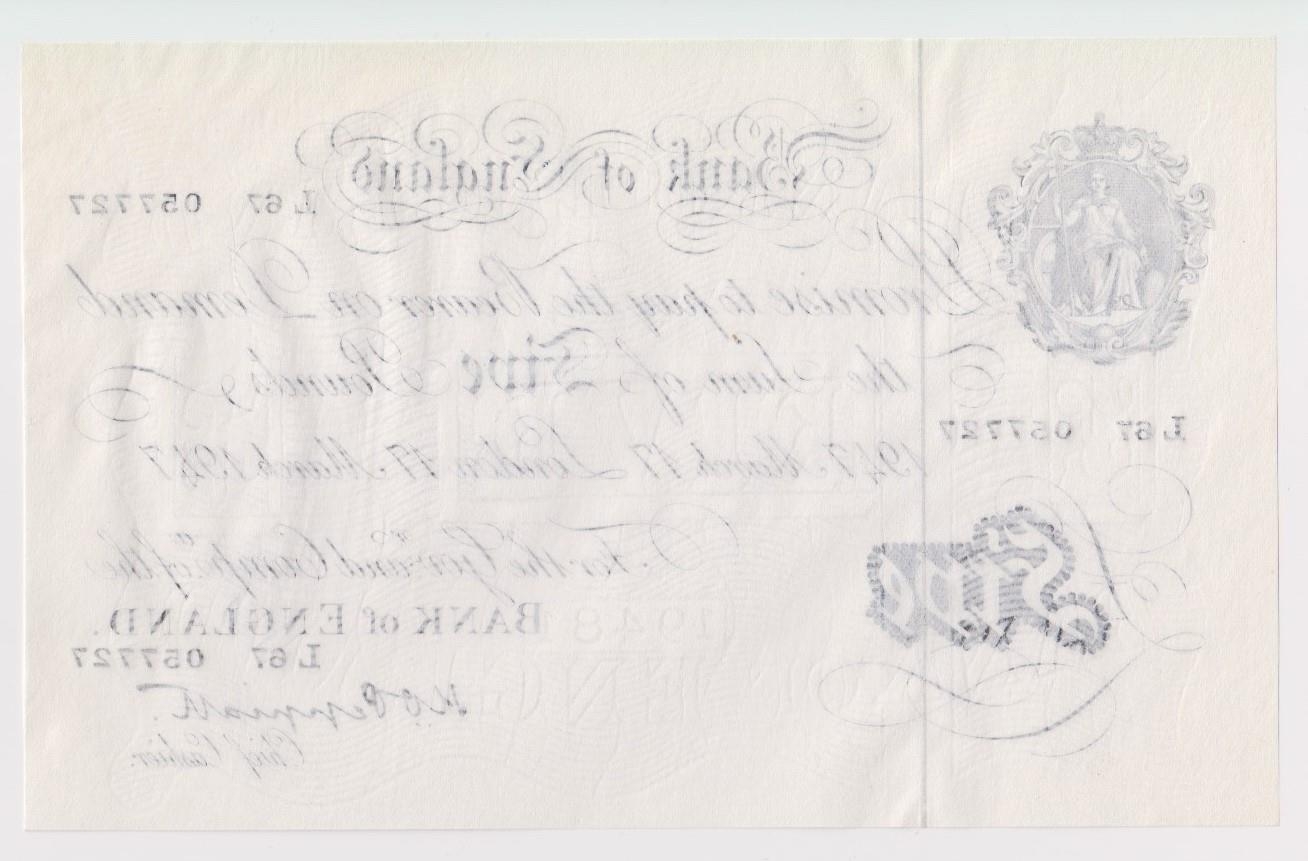 Bank of England
L67 057727
I Promise to pay the Bearer on Demand
the Sum of Five Pounds
L67 057727
1947 March 17 London 17 March 1947
For the Govr and Compa of the
Five
BANK of ENGLAND.
1948
L67 057727
Chief Cashier.